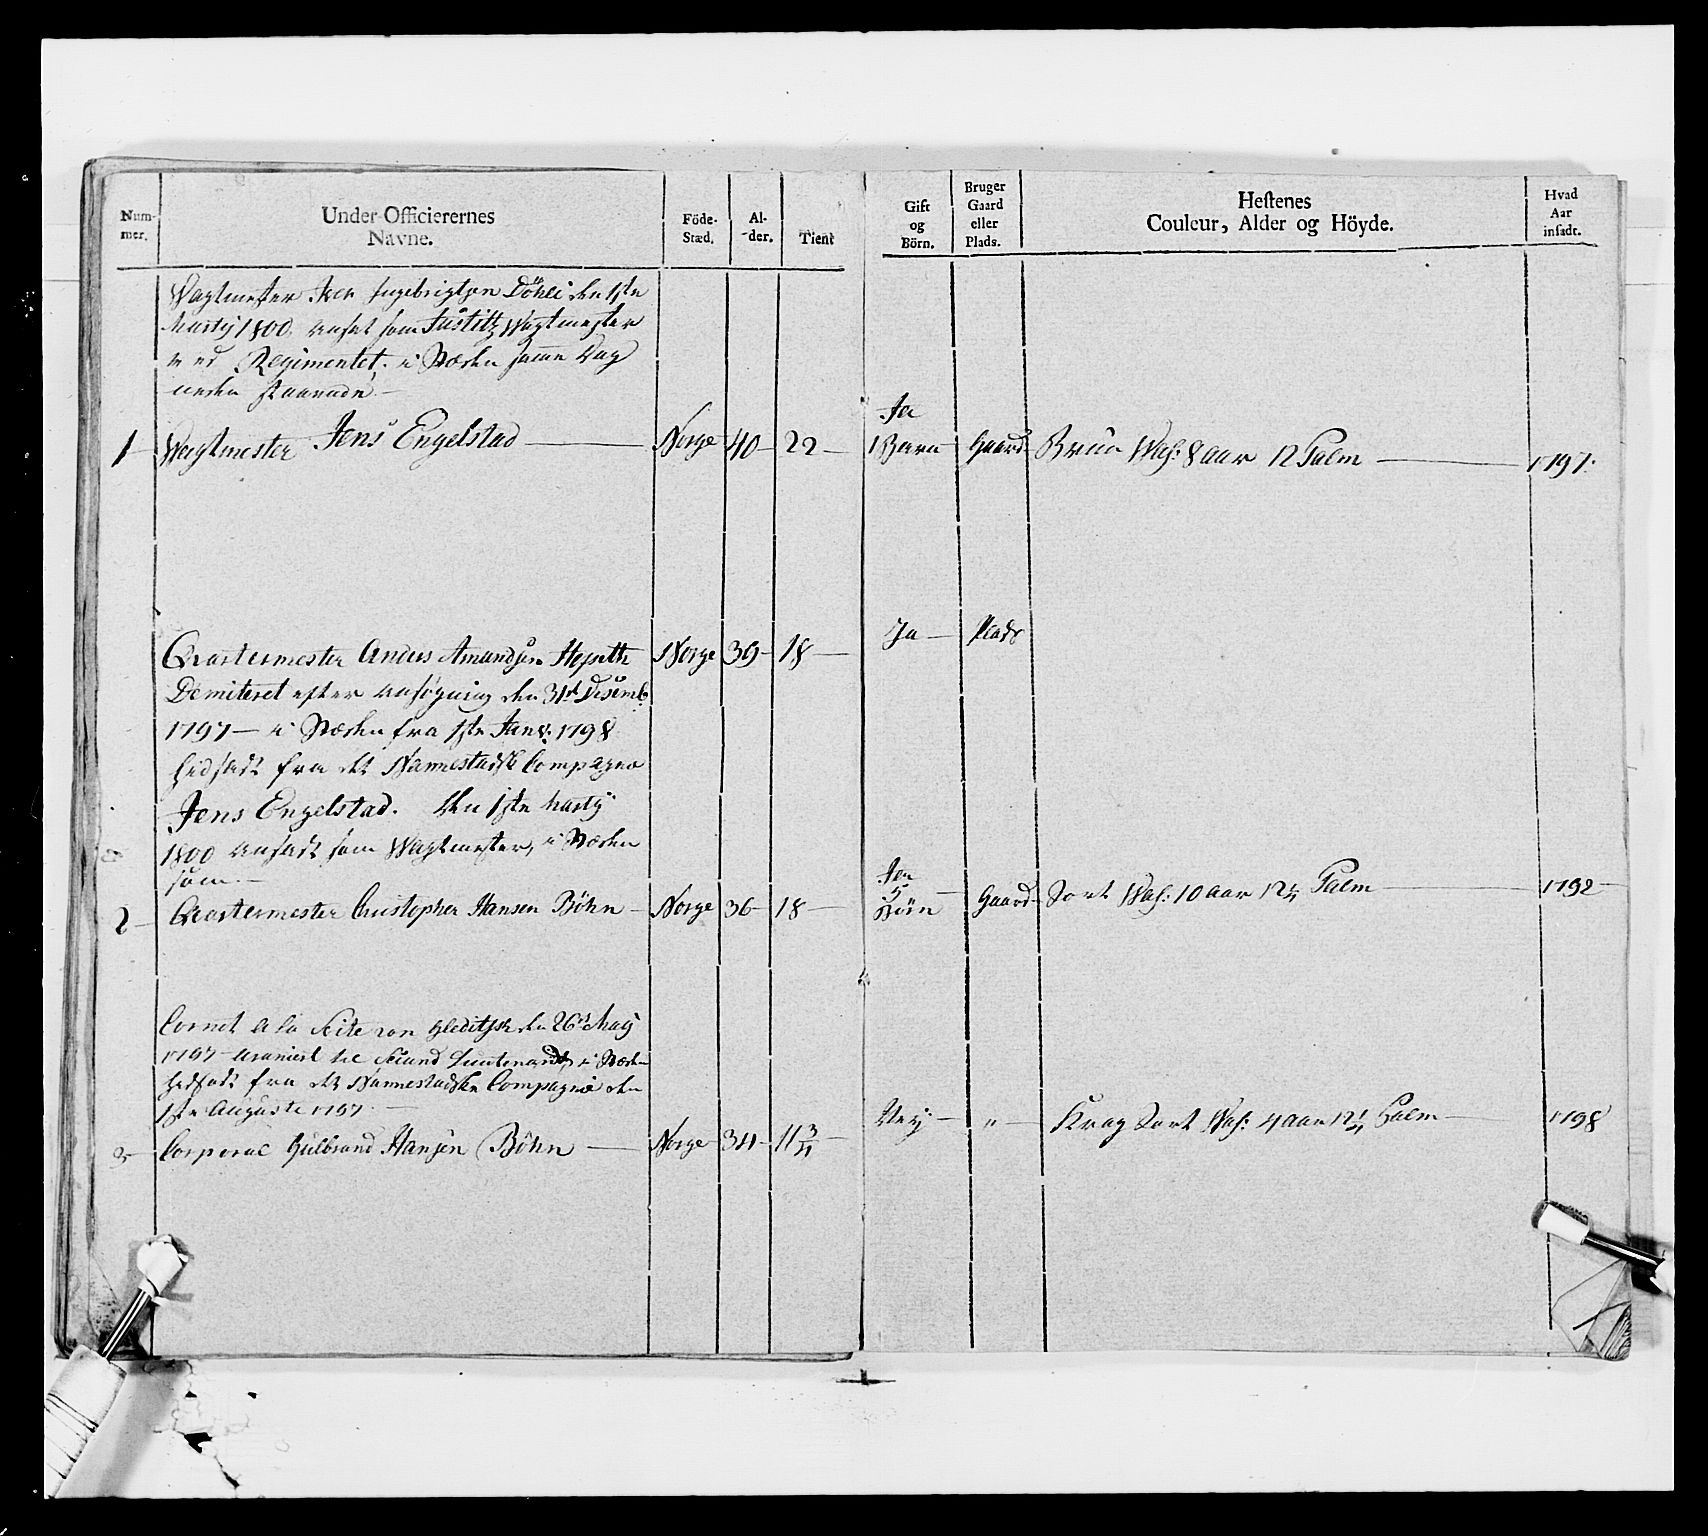 Num-
mer.
Under-Officierernes
Navne.
Föde-
Stæd.
Al-
der.
Tient
Gift
og
Börn.
Bruger
Gaard
eller
Plads.
Hestenes
Couleur, Alder og Höyde.
Hvad
Aar
insadt.
Vagtmester Iver Ingebrigtsen Döhli den 1ste
Martij 1800. ansat som Justitz Wagtmester
ved Regimentet, i Stæden samme Dag
1 Wagtmester Jens Engelstad — Norge 40 — 22 — Ja 1 Barn Gaard Bruun Wal: 8 aar 12 Palm — 1797.
Qvartermester Anders Amundsen Hexeth Norge 39 — 18 — Ja — Plads
Demiteret efter ansögning den 31d Desemb:
1797 — i Stæden fra 1ste Janv: 1798
hidsadt fra det Nannestadske Compagnie
Jens Engelstad. den 1ste Martij
1800 ansadt som Wagtmester, i Stæden
som. —
2 — Qvartermester Christopher Hansen Böhn — Norge 36 — 18 — Ja 5 Börn Gaard Sort Wal: 10 aar 12¼ Palm — 1792 —
Cornet a la Suite von Gleditsch den 26d Maij
1797 Avanceret til Second Lieutenant, i Stæden
hidsadt fra det Nannestadske Compagnie den
1ste Auguste 1797. —
3 — Corporal Gulbrand Hansen Böhn — Norge 34 — 11¾ — Neij — " — Krag Sort Wal: 4 aar 12¼ Palm — 1798